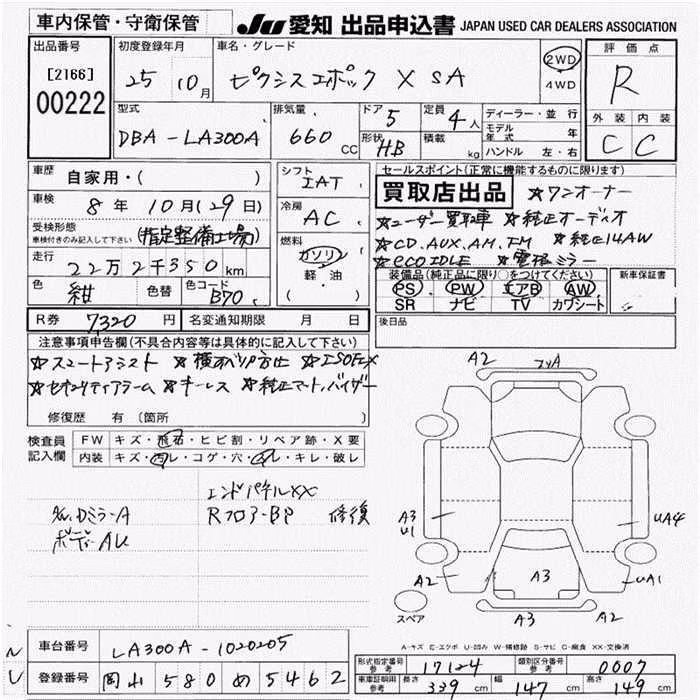 車内保管・守衛保管 JU 愛知 出品申込書 JAPAN USED CAR DEALERS ASSOCIATION
出品番号 初度登録年月 車名・グレード 評価点
[2166] 25 10月 ピクシスエポック X SA 2WD R
00222 4WD
型式 排気量 ドア 5 定員 4人 ディーラー・並行 外装 内装
DBA-LA300A 660CC 形状 HB 積載 kg モデル年式 年 C C
ハンドル 左・右
車歴 自家用・( ) シフト IAT セールスポイント(正常に機能するものに限ります)
車検 8年10月(29日) 冷房 AC 買取店出品 ☆ワンオーナー
受検形態 車検付きのみ記入して下さい (指定整備工場) ☆ユーザー買取車 ☆純正オーディオ
走行 22万2千350km 燃料 ガソリン ☆CD.AUX.AM.FM ☆純正14AW
軽・油 ☆eco IDLE ☆電格ミラー
色 紺 色替 色コード B70 ( ) 装備品(純正品に限り○をつけてください) 新車保証書
PS PW エアB AW
SR ナビ TV カワシート
R券 7320円 名変通知期限 月 日 後日品
注意事項申告欄(不具合内容等は具体的に記入して下さい)
☆スマートアシスト ☆横すべり防止 ☆ISOFIX
☆セキュリティアラーム ☆キーレス ☆純正マット、バイザー
修復歴 有 〔箇所 〕
検査員記入欄 FW キズ・飛石・ヒビ割・リペア跡・X要
内装 キズ・汚レ・コゲ・穴・スレ・キレ・破レ
エンドパネルXX
Dミラー A RフロアーBP 修復
ボディAU
A2 A
A3 U1 UA4
A2 A3 UA1
スペア A3 A2
A-キズ E-エクボ U-凹み W-補修跡 S-サビ C-腐食 XX-交換済
車台番号 LA300A-1020205
登録番号 岡山 580 め 5462
形式指定番号 参考 17124 類別区分番号 参考 0007
車庫証明用 参考 長さ 339cm 幅 147cm 高さ 149cm